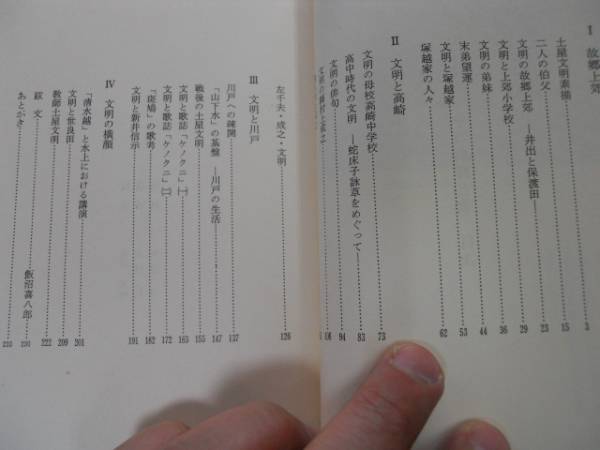 I 故郷上郊
土屋文明素描 3
二人の伯父 15
文明の故郷上郊 ―井出と保渡田― 23
文明と上郊小学校 29
文明の弟妹 36
末弟望運 44
文明と塚越家 53
塚越家の人々 62
II 文明と高崎
文明の母校高崎中学校 73
高中時代の文明 ―蛇床子詠草をめぐって― 83
文明の俳句 94
106
左千夫・成之・文明 126
III 文明と川戸
川戸への疎開 137
「山下水」の基盤 ―川戸の生活 147
戦後の土屋文明 155
文明と歌誌「ケノクニ」〔一〕 163
文明と歌誌「ケノクニ」〔二〕 172
「斑鳩」の歌考 182
文明と新井信示 191
IV 文明の横顔
「清水越」と水上における講演 201
文明と世良田 209
教師土屋文明 222
跋文 飯沼喜八郎
あとがき